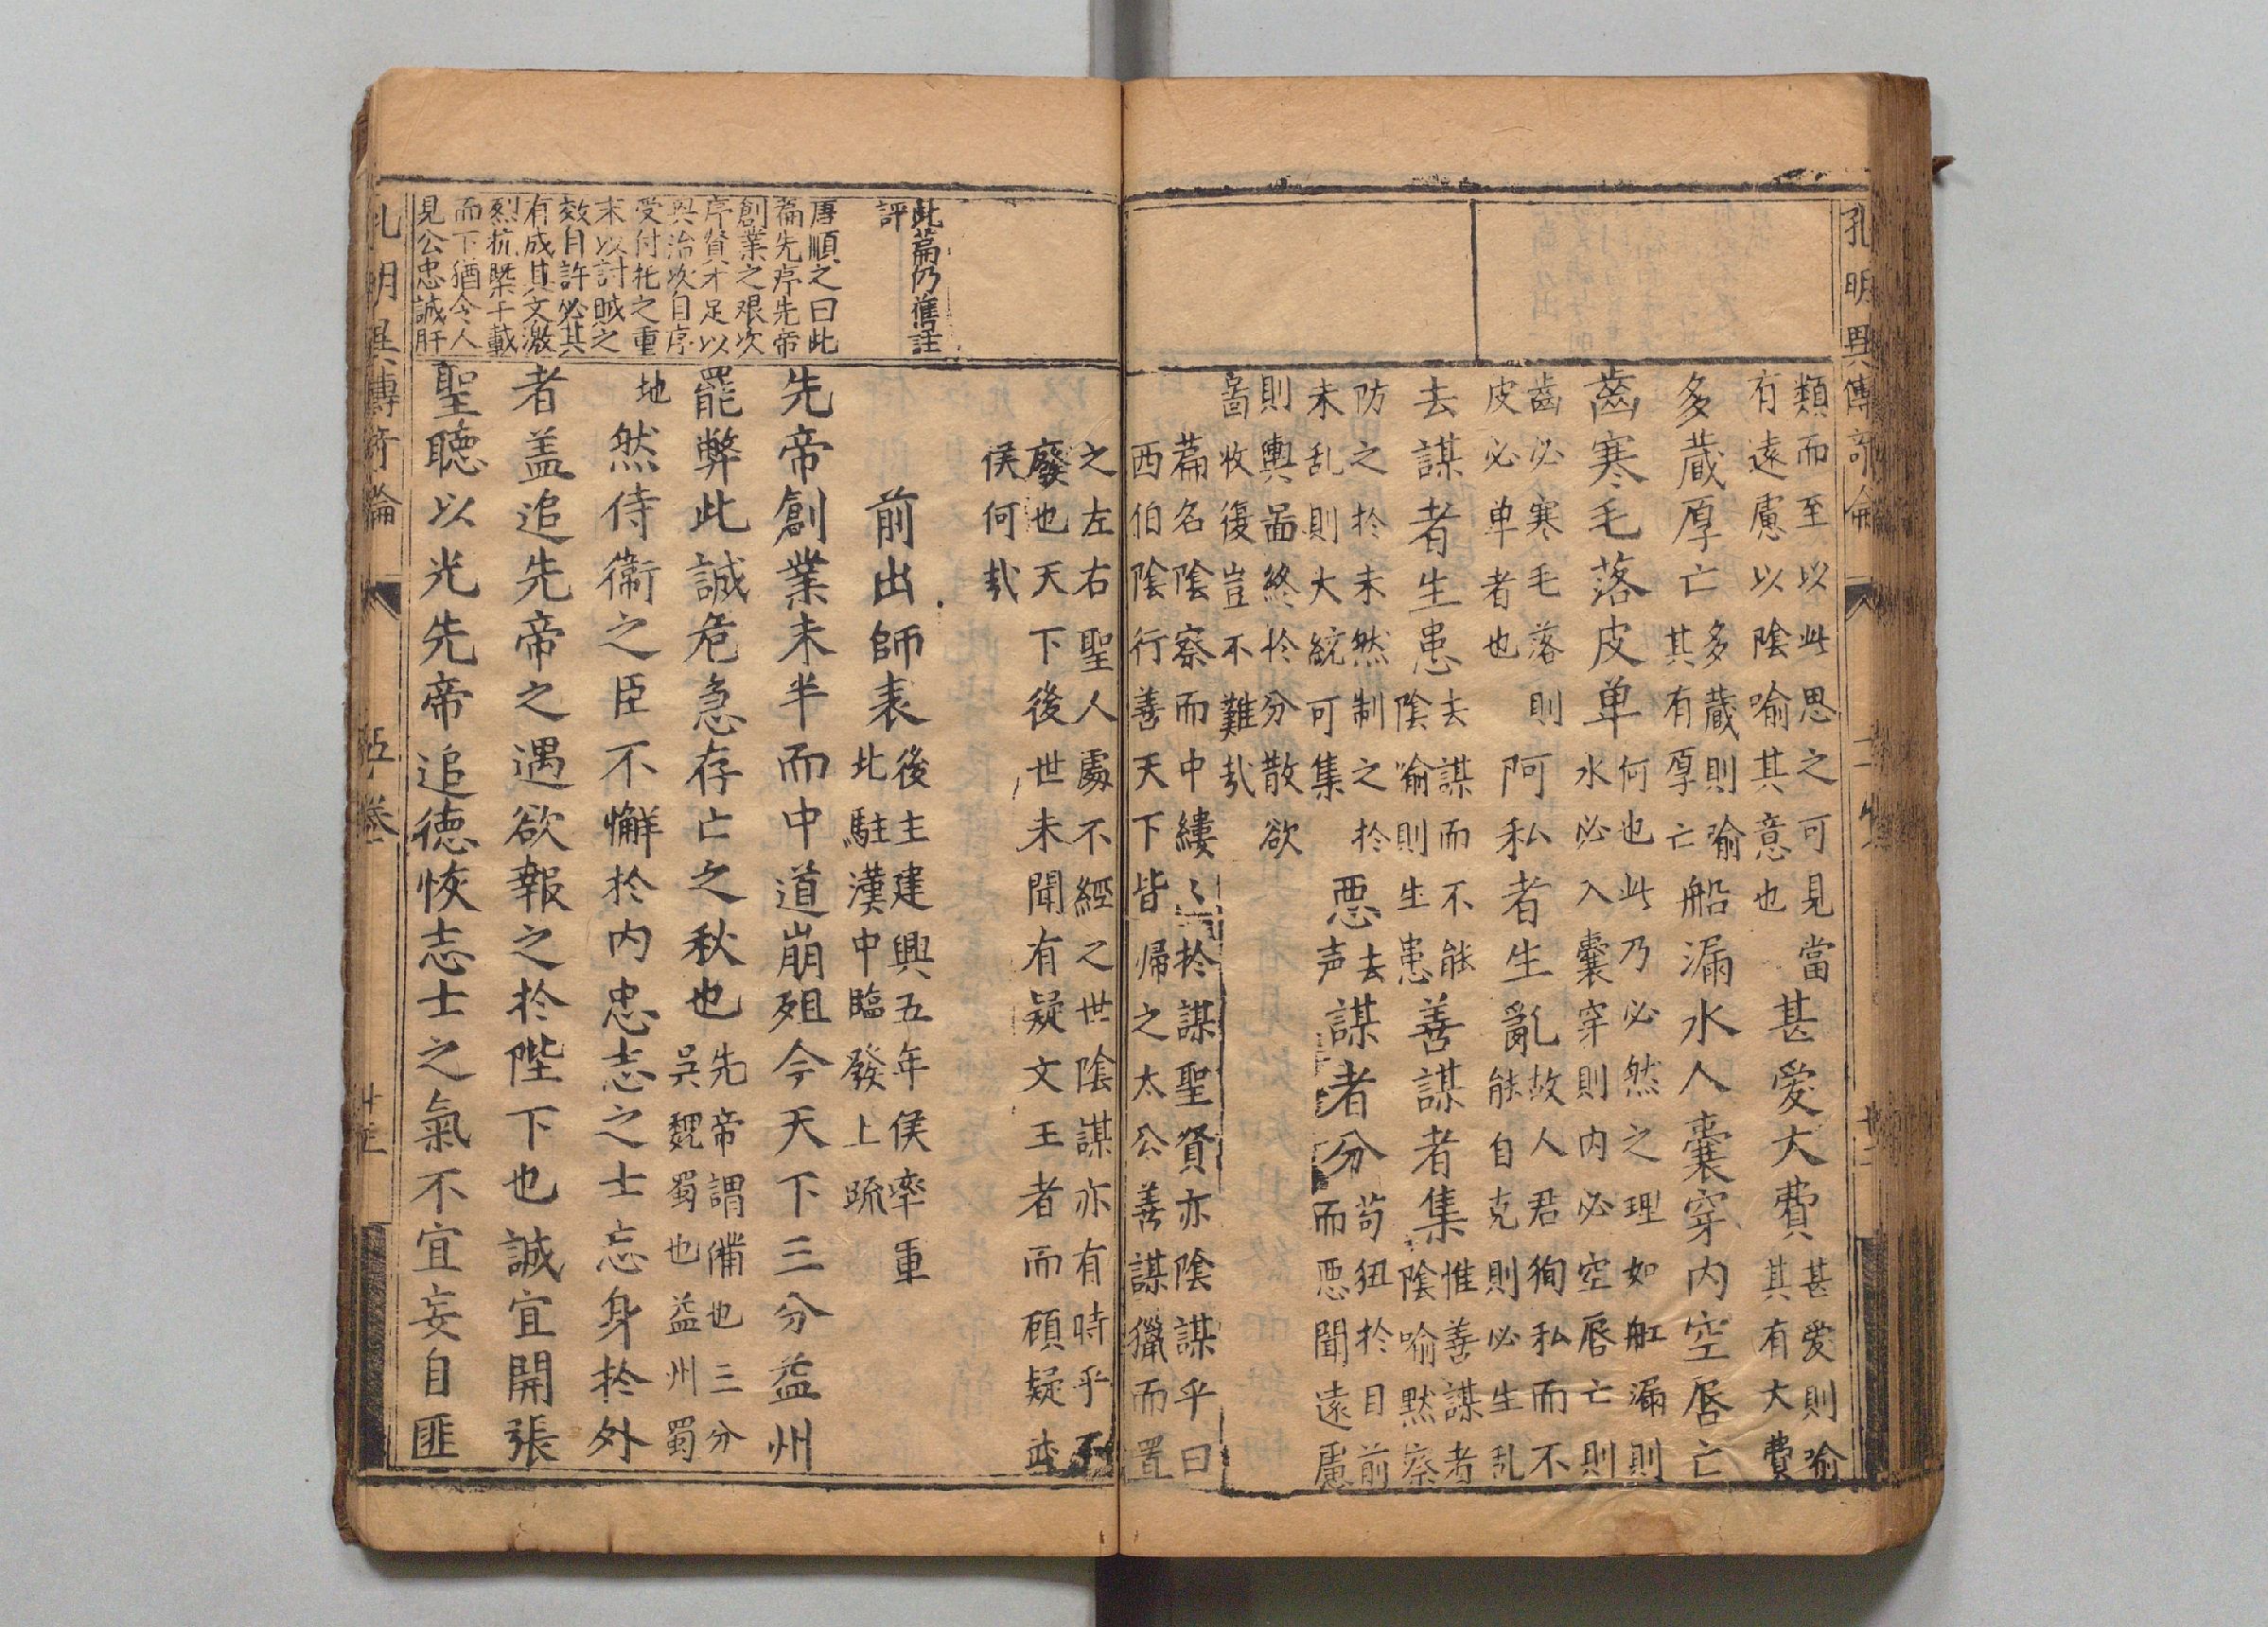 孔明異傳奇侖
類而至以此思之可見當
有遠慮以陰喻其意也
甚愛大費
甚爱則喻
其有大費
多蔵厚亡
多蔵則喻
其有厚亡
船漏水人囊穿内空唇亡
齒寒毛落皮单
何也此乃必然之理如舡漏則
水必入囊穿則内必空唇亡則
齒必寒毛落則
皮必单者也
阿私者生亂
故人君徇私而不
能自克則必生乱
去謀者生患
去謀而不能
陰喻則生患
善謀者集
惟善謀者
陰喻黙察
防之扵未然制之扵
未乱則大統可集
惡謀者分
去声
苟狃扵目前
而恶聞遠慮
則輿啚終扵分散欲
啚收復豈不難㢤
篇名陰察而中縷〻扵謀聖賢亦陰謀乎曰
西伯陰行善天下皆歸之太公善謀獵而置
之左右聖人處不經之世陰謀亦有時乎不
廢也天下後世未聞有疑文王者而顧疑武
侯何㢤
此篇仍舊註
評
前出師表
後主建興五年侯率重
北駐漢中臨發上疏
唐順之曰此
篇先序先帝
創業之艰次
序賢才足以
興治次自序
受付托之重
末以討賊之
效自許必其
有成其文激
烈抗槩千載
而下猶令人
見公忠誠肝
先帝創業未半而中道崩殂今天下三分益州
罷弊此誠危急存亡之秋也
先帝謂備也三分
吳魏蜀也益州蜀
地
然侍衛之臣不懈扵内忠志之士忘身扵外
者盖追先帝之遇欲報之扵陛下也誠宜開張
聖聴以光先帝追徳恢志士之氣不宜妄自匪
孔明異傳奇論
五卷